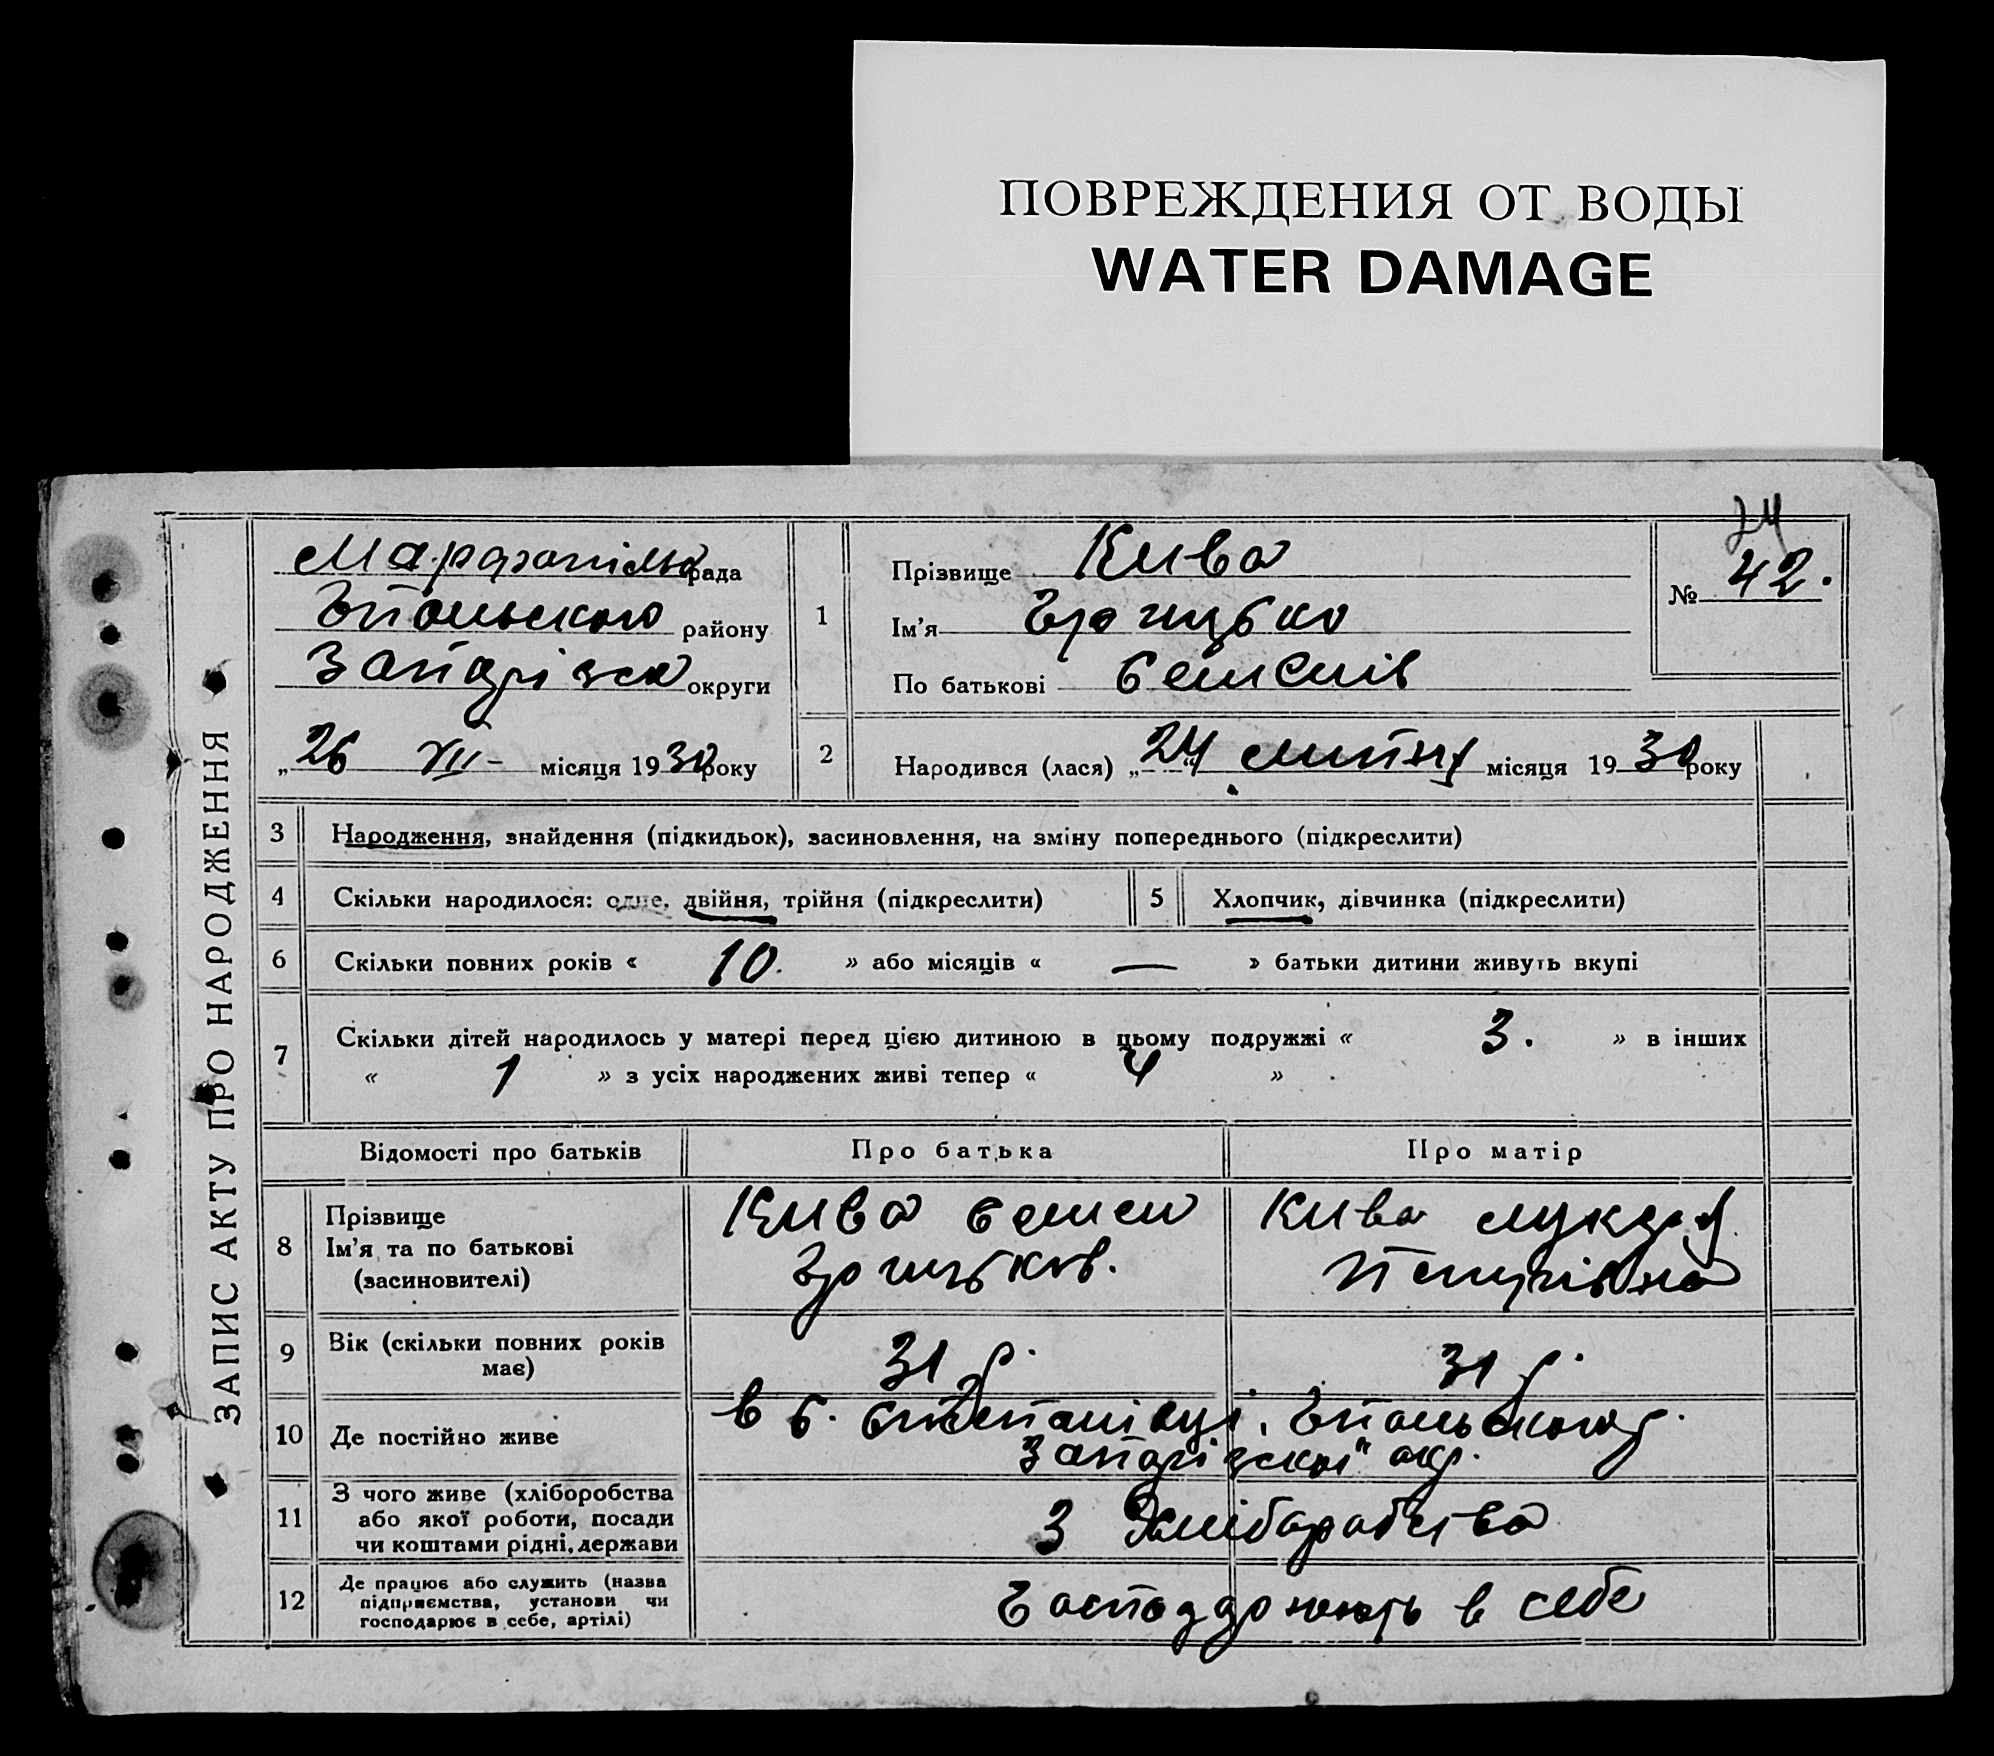 ПОВРЕЖДЕНИЯ ОТ ВОДЫ
WATER DAMAGE
24
ЗАПИС АКТУ ПРО НАРОДЖЕННЯ
Марфопільска рада
Гпольского району
Запорізка округи
„26 VII - місяця 1930 року
1
Прізвище Кива
Ім’я Григорько
По батькові Семенів
№ 42.
2 Народився (лася) „24“ липня місяця 1930 року
3 Народження, знайдення (підкидьок), засиновлення, на зміну попереднього (підкреслити)
4 Скільки народилося: одне, двійня, трійня (підкреслити)
5 Хлопчик, дівчинка (підкреслити)
6 Скільки повних років « 10. » або місяців « — » батьки дитини живуть вкупі
7 Скільки дітей народилось у матері перед цією дитиною в цьому подружжі « 3. » в інших
« 1 » з усіх народжених живі тепер « 4 »
Відомості про батьків Про батька Про матір
8 Прізвище
Ім’я та по батькові
(засиновителі)
Кива Семен
Кива
9 Вік (скільки повних років
має)
31 р. 31 р.
10 Де постійно живе
в с. Гпольского р.
Запорізскої окр.
11 З чого живе (хліборобства
або якої роботи, посади
чи коштами рідні, держави
З Хліборобства
12 Де працює або служить (назва
підприємства, установи чи
господарює в себе, артілі)
Господарюють в себе